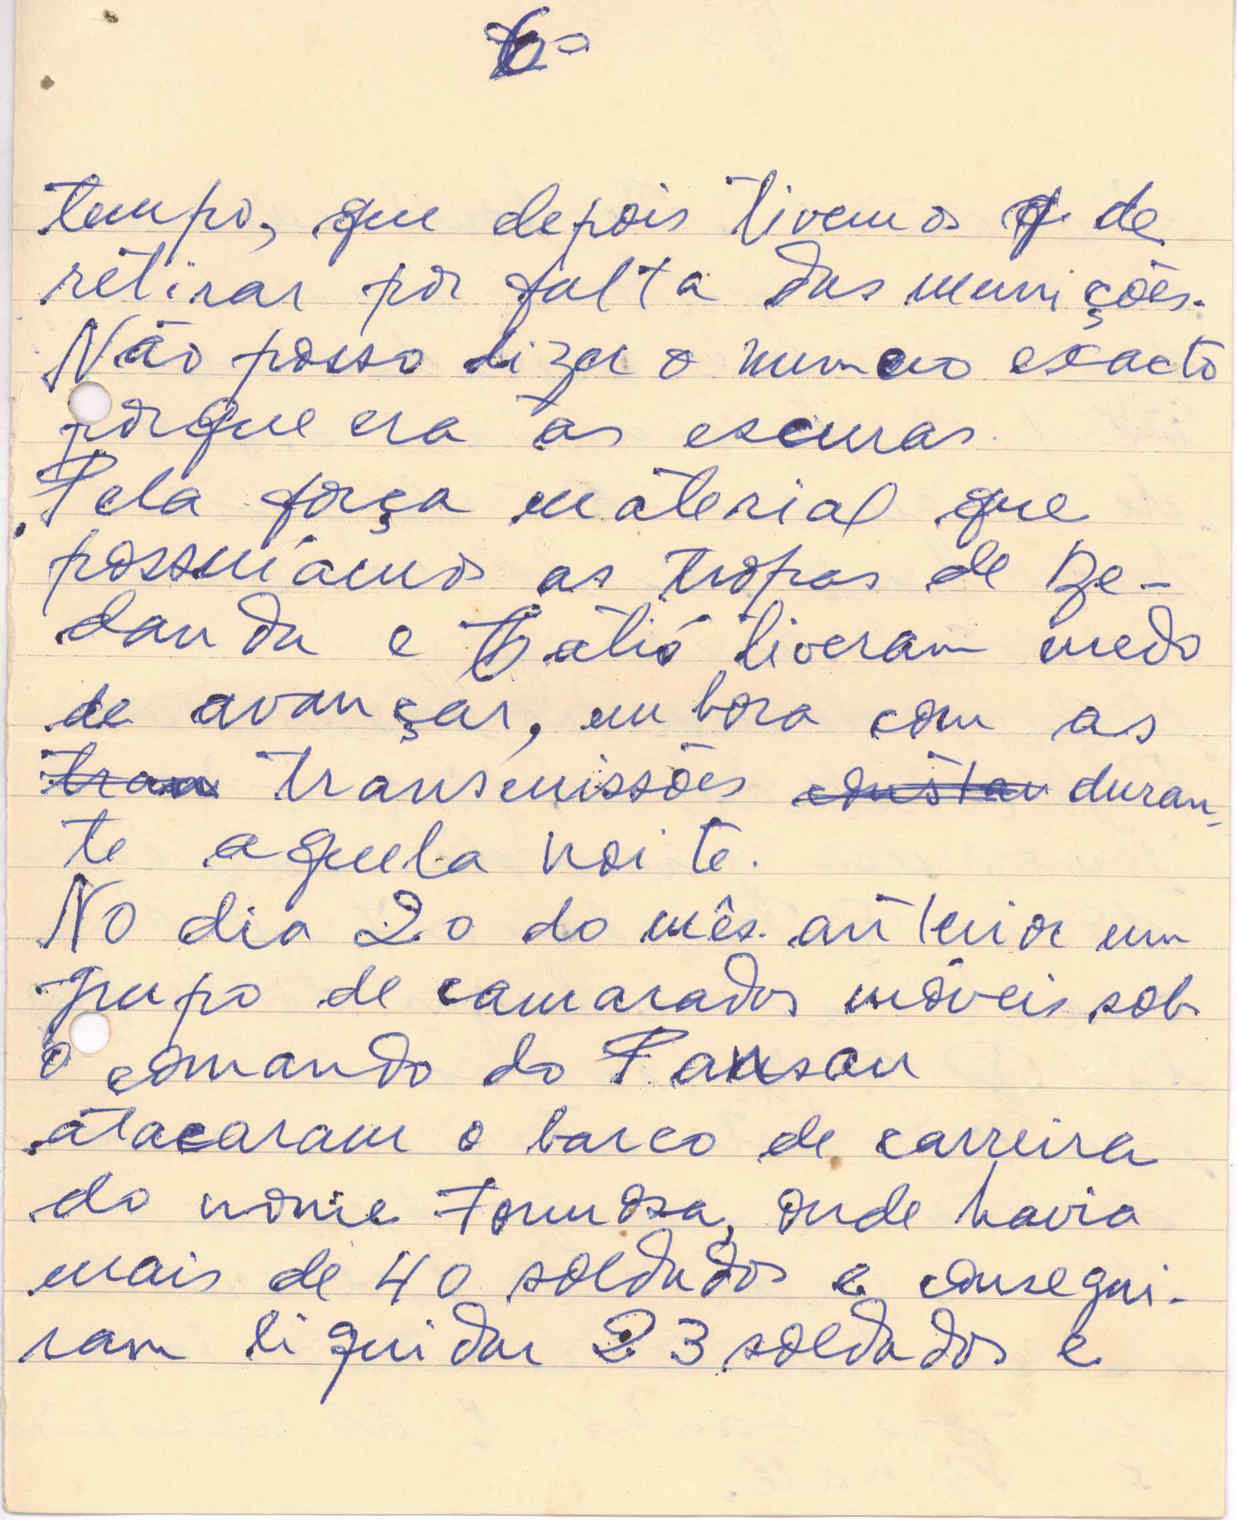 6-
tempo, que depois tivemos q de
retirar por falta das munições.
Não posso dizer o numero exacto
porque era às escuras.
Pela força material que
possuíamos as tropas de Be-
danda e Catió tiveram medo
de avançar, embora com as
tran transmissões constan duran-
te aquela noite.
No dia 20 do mês anterior um
grupo de camarados móveis sob
o comando do Pansau
atacaram o barco de carreira
do nome Formosa, onde havia
mais de 40 soldados e consegui-
ram liquidar 23 soldados e